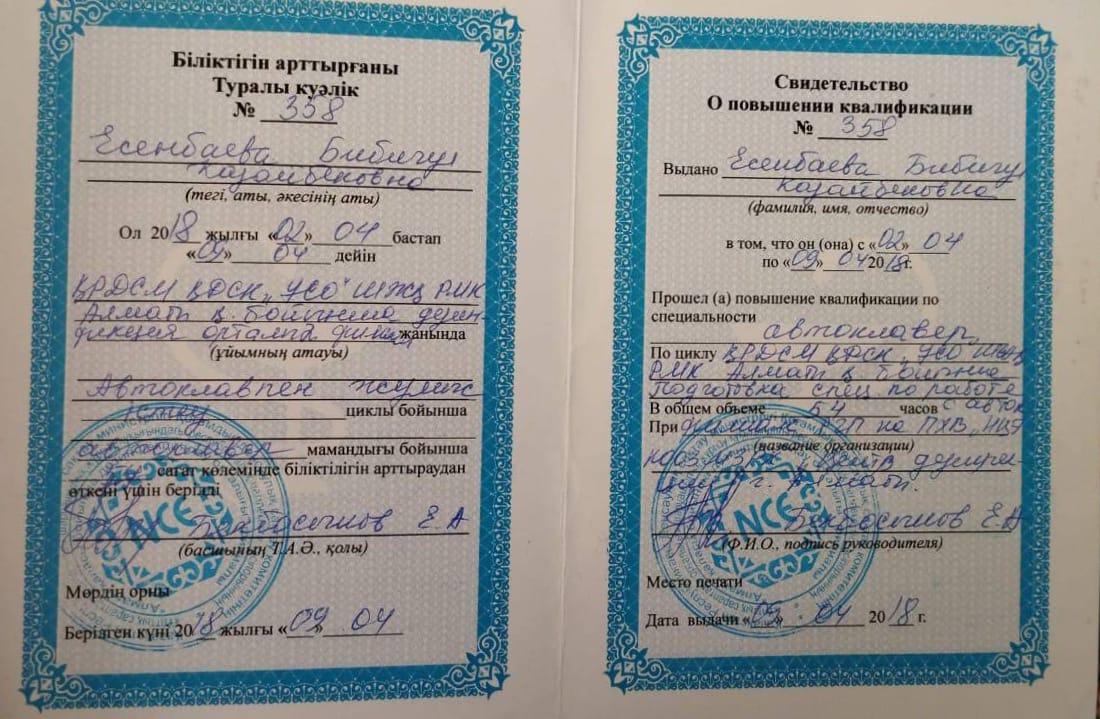 Біліктігін арттырғаны
Туралы куәлік
№ 358
Есенбаева Бибигул
Казайбековна
(тегі, аты, әкесінің аты)
Ол 2018 жылғы «02» 04 бастап
«09» 04 дейін
ҚРДСМ ҚДСК „ҰСО" ШЖҚ РМК
Алматы қ. бойынша дезин-
фекция орталығы жанында
(ұйымның атауы)
Автоклавпен жұмыс
істеу циклы бойынша
автоклавер мамандығы бойынша
сағат көлемінде біліктілігін арттыраудан
өткені үшін берілді
Е. А
(басшының Т.А.Ә., қолы)
Мөрдің орны
Берілген күні 2018 жылғы «09» 04
NCE
Свидетельство
О повышении квалификации
№ 358
Выдано Есенбаева Бибигул
Казайбековна
(фамилия, имя, отчество)
в том, что он (она) с «02» 04
по «09» 04 2018г.
Прошел (а) повышение квалификации по
специальности
автоклавер
По циклу ҚРДСМ ҚДСК „ҰСО ШЖҚ
РМК Алматы қ. бойынша
подготовка спец по работе
В общем объеме 54 часов с авток
При филиале РГП на ПХВ „НЦЭ
(название организации)
г. Алматы.
Е. А
(Ф.И.О., подпись руководителя)
Место печати
Дата выдачи «09» 04 2018 г.
NCE